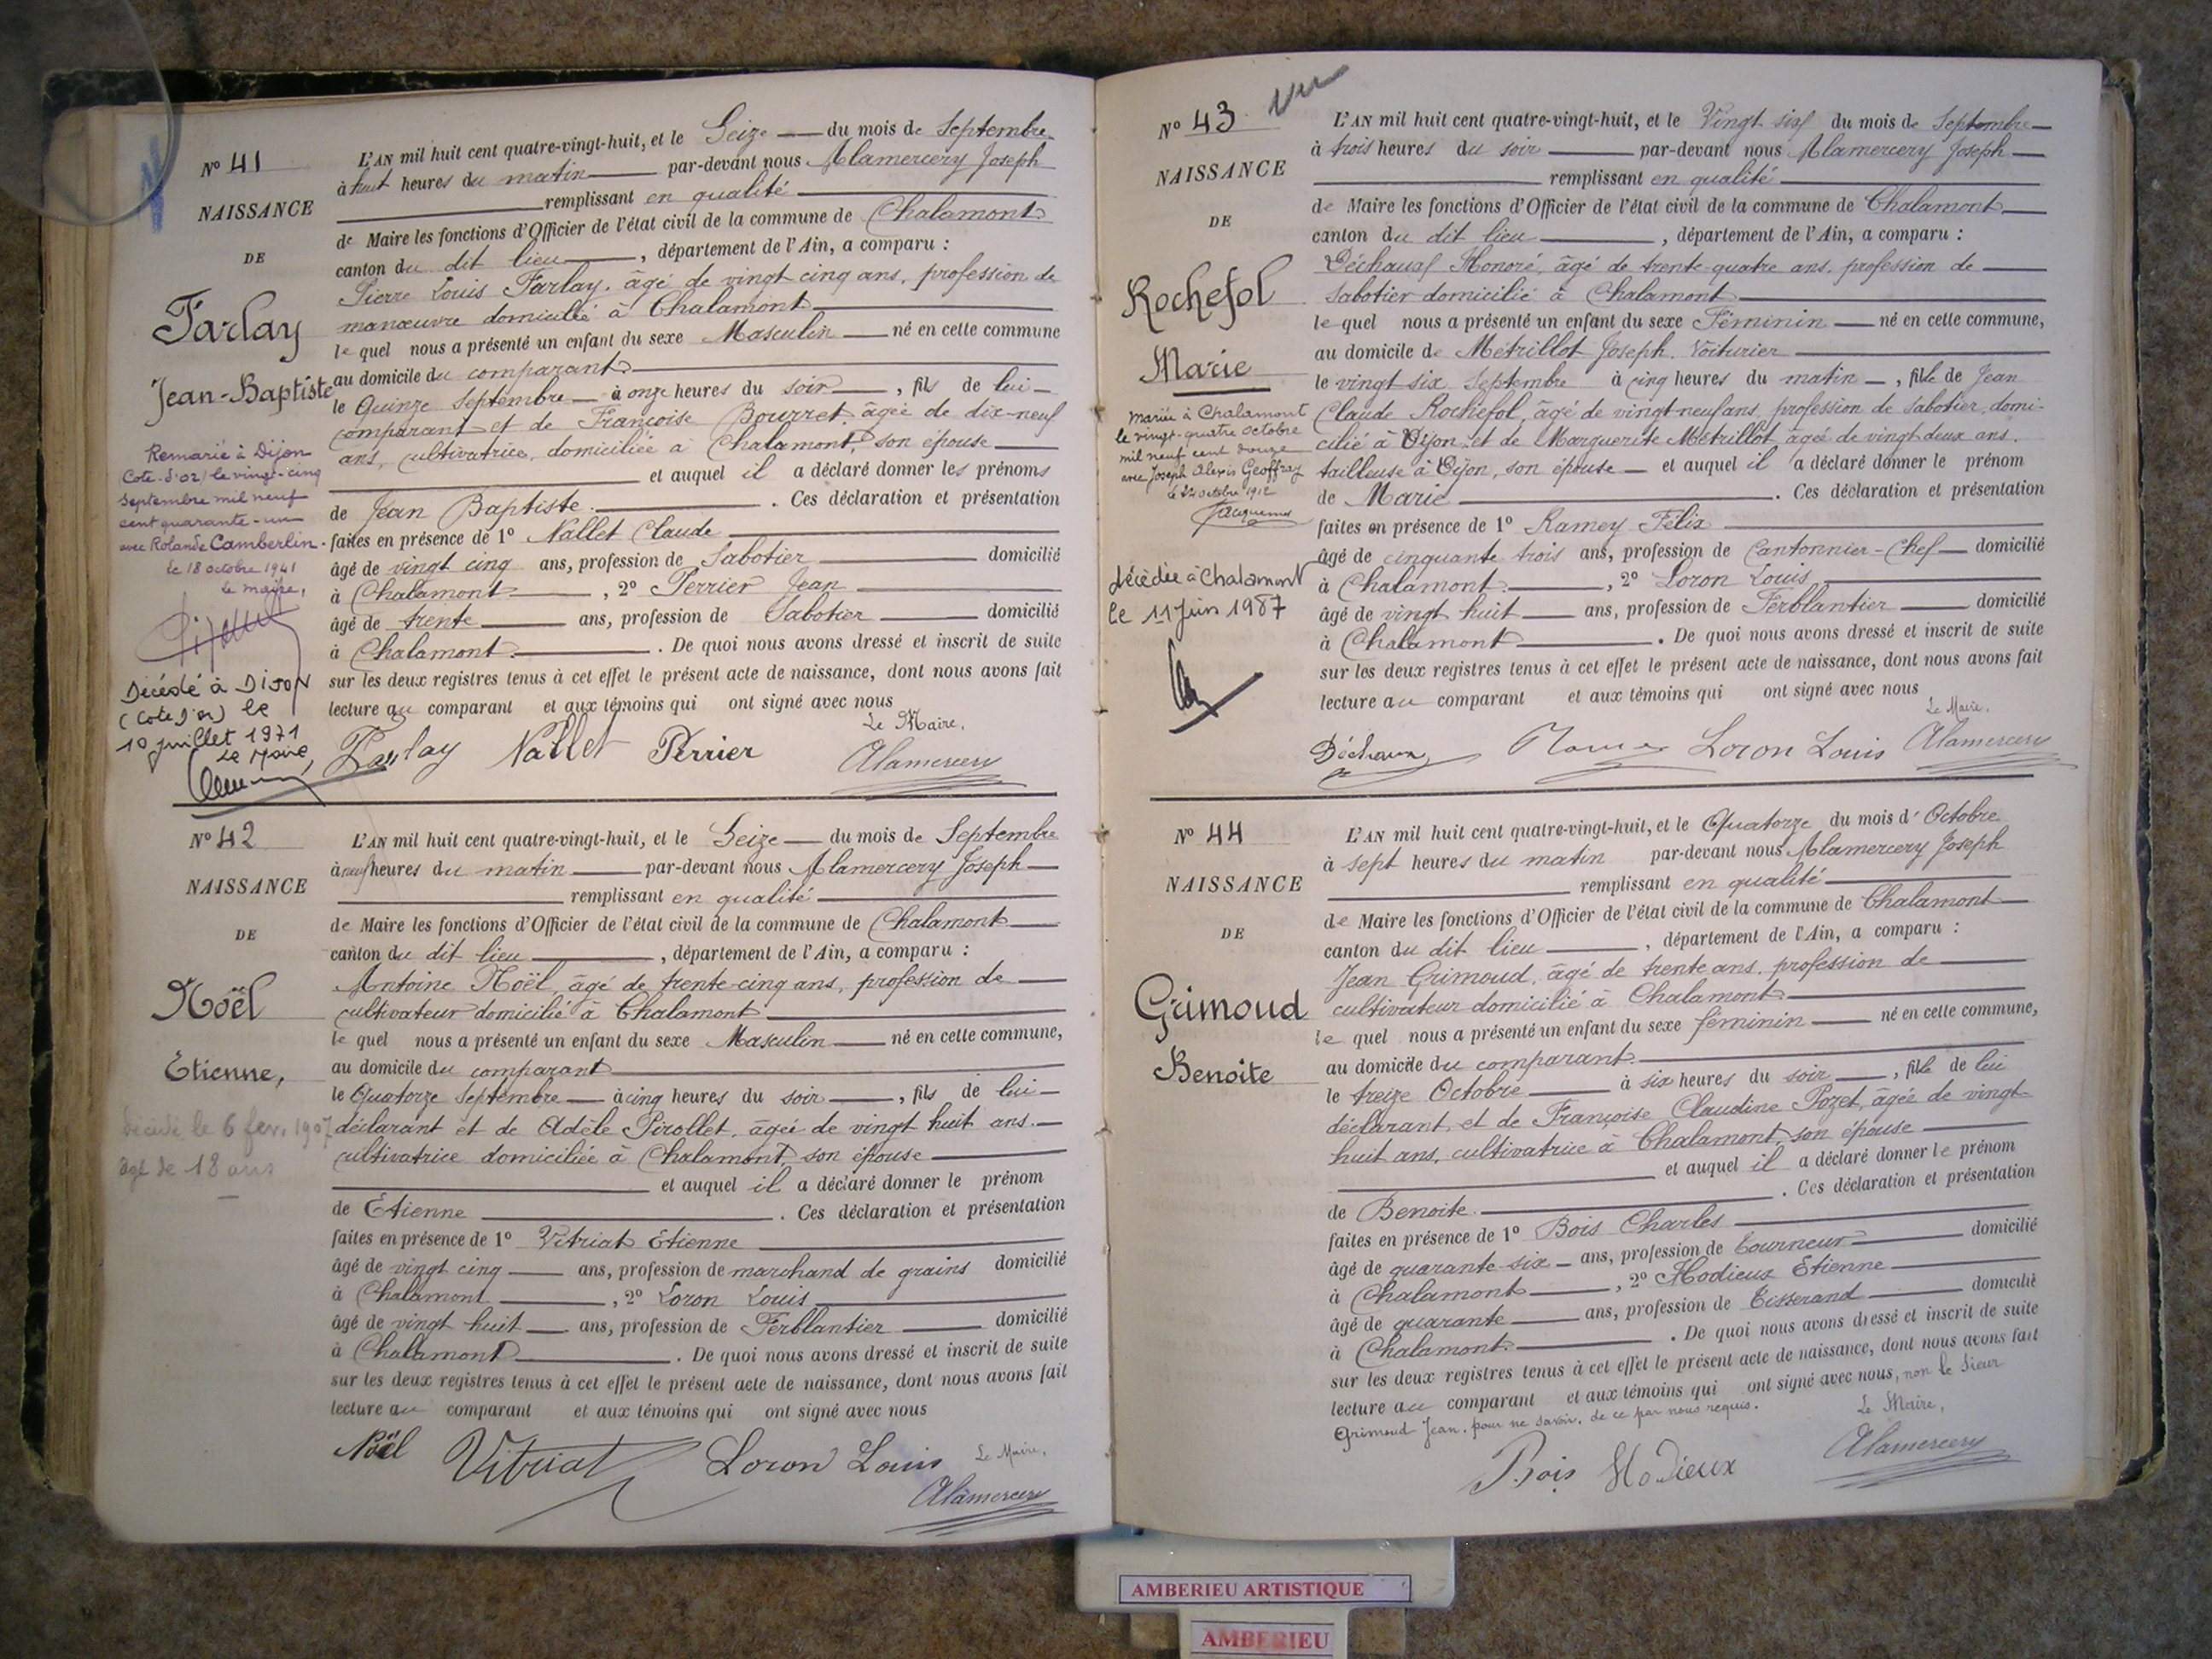 N° 41
NAISSANCE
DE
Farlay
Jean-Baptiste
Remarié à Dijon
Cote-d'or, le vingt-cinq
Septembre mil neuf
cent quarante-un
avec Rolande Camberlin.
le 18 octobre 1941
Le maire,
Décédé à Dijon
(Cote d'or) le
10 juillet 1971
Le Maire,
L'AN mil huit cent quatre-vingt-huit, et le Seize du mois de Septembre
à huit heures du matin par-devant nous Alamercery Joseph
remplissant en qualité
de Maire les fonctions d'Officier de l'état civil de la commune de Chalamont
canton du dit lieu, département de l'Ain, a comparu :
Pierre Louis Farlay, âgé de vingt cinq ans, profession de
manœuvre domicilié à Chalamont
le quel nous a présenté un enfant du sexe Masculin né en cette commune
au domicile du comparant
le Quinze Septembre à onze heures du soir, fils de lui
comparant et de Françoise Bourret, âgée de dix-neuf
ans, cultivatrice, domiciliée à Chalamont, son épouse
et auquel il a déclaré donner les prénoms
de Jean Baptiste. Ces déclaration et présentation
faites en présence de 1° Nallet Claude
âgé de vingt cinq ans, profession de Sabotier domicilié
à Chalamont, 2° Perrier Jean
âgé de trente ans, profession de Sabotier domicilié
à Chalamont. De quoi nous avons dressé et inscrit de suite
sur les deux registres tenus à cet effet le présent acte de naissance, dont nous avons fait
lecture au comparant et aux témoins qui ont signé avec nous
Le Maire,
Farlay Nallet Perrier Alamercery
N° 42
NAISSANCE
DE
Noël
Etienne,
Décédé le 6 fev. 1907
agé de 18 ans
L'AN mil huit cent quatre-vingt-huit, et le Seize du mois de Septembre
à neuf heures du matin par-devant nous Alamercery Joseph
remplissant en qualité
de Maire les fonctions d'Officier de l'état civil de la commune de Chalamont
canton du dit lieu, département de l'Ain, a comparu :
Antoine Noël, âgé de trente-cinq ans, profession de
cultivateur domicilié à Chalamont
le quel nous a présenté un enfant du sexe Masculin né en cette commune,
au domicile du comparant
le Quatorze Septembre à cinq heures du soir, fils de lui
déclarant et de Adèle Pirollet, âgée de vingt huit ans.
cultivatrice domiciliée à Chalamont, son épouse
et auquel il a déclaré donner le prénom
de Etienne. Ces déclaration et présentation
faites en présence de 1° Vitriat Etienne
âgé de vingt cinq ans, profession de marchand de grains domicilié
à Chalamont, 2° Loron Louis
âgé de vingt huit ans, profession de Ferblantier domicilié
à Chalamont. De quoi nous avons dressé et inscrit de suite
sur les deux registres tenus à cet effet le présent acte de naissance, dont nous avons fait
lecture au comparant et aux témoins qui ont signé avec nous
Noël Vitriat Loron Louis Le Maire,
Alamercery
N° 43 Vu
NAISSANCE
DE
Rochefol
Marie
Mariée à Chalamont
le vingt-quatre octobre
mil neuf cent douze
avec Joseph Alexis Geoffray
le 24 octobre 1912
Jacquemet
décédée à Chalamont
le 11 Juin 1987
L'AN mil huit cent quatre-vingt-huit, et le Vingt six du mois de Septembre
à trois heures du soir par-devant nous Alamercery Joseph
remplissant en qualité
de Maire les fonctions d'Officier de l'état civil de la commune de Chalamont
canton du dit lieu, département de l'Ain, a comparu :
Déchaux Honoré, âgé de trente-quatre ans, profession de
Sabotier domicilié à Chalamont
le quel nous a présenté un enfant du sexe Féminin né en cette commune,
au domicile de Métrillot Joseph, Voiturier
le vingt six Septembre à cinq heures du matin, fille de Jean
Claude Rochefol, âgé de vingt-neuf ans, profession de Sabotier, domi-
cilié à Dijon, et de Marguerite Métrillot, âgée de vingt deux ans.
tailleuse à Dijon, son épouse et auquel il a déclaré donner le prénom
de Marie. Ces déclaration et présentation
faites en présence de 1° Ramey Félix
âgé de cinquante trois ans, profession de Cantonnier-Chef domicilié
à Chalamont, 2° Loron Louis
âgé de vingt huit ans, profession de Ferblantier domicilié
à Chalamont. De quoi nous avons dressé et inscrit de suite
sur les deux registres tenus à cet effet le présent acte de naissance, dont nous avons fait
lecture au comparant et aux témoins qui ont signé avec nous
Le Maire,
Déchaux Loron Louis Alamercery
N° 44
NAISSANCE
DE
Grimoud
Benoite
L'AN mil huit cent quatre-vingt-huit, et le Quatorze du mois d'Octobre
à sept heures du matin par-devant nous Alamercery Joseph
remplissant en qualité
de Maire les fonctions d'Officier de l'état civil de la commune de Chalamont
canton du dit lieu, département de l'Ain, a comparu :
Jean Grimoud, âgé de trente ans, profession de
cultivateur domicilié à Chalamont
le quel nous a présenté un enfant du sexe féminin né en cette commune,
au domicile du comparant.
le treize Octobre à six heures du soir, fille de lui
déclarant, et de Françoise Claudine Pozet, âgée de vingt
huit ans, cultivatrice à Chalamont, son épouse
et auquel il a déclaré donner le prénom
de Benoite. Ces déclaration et présentation
faites en présence de 1° Bois Charles
âgé de quarante six ans, profession de tourneur domicilié
à Chalamont, 2° Hodieux Etienne
âgé de quarante ans, profession de Tisserand domicilié
à Chalamont. De quoi nous avons dressé et inscrit de suite
sur les deux registres tenus à cet effet le présent acte de naissance, dont nous avons fait
lecture au comparant et aux témoins qui ont signé avec nous, non le Sieur
Grimoud Jean, pour ne savoir, de ce par nous requis.
Le Maire,
Bois Hodieux Alamercery
AMBERIEU ARTISTIQUE
AMBERIEU